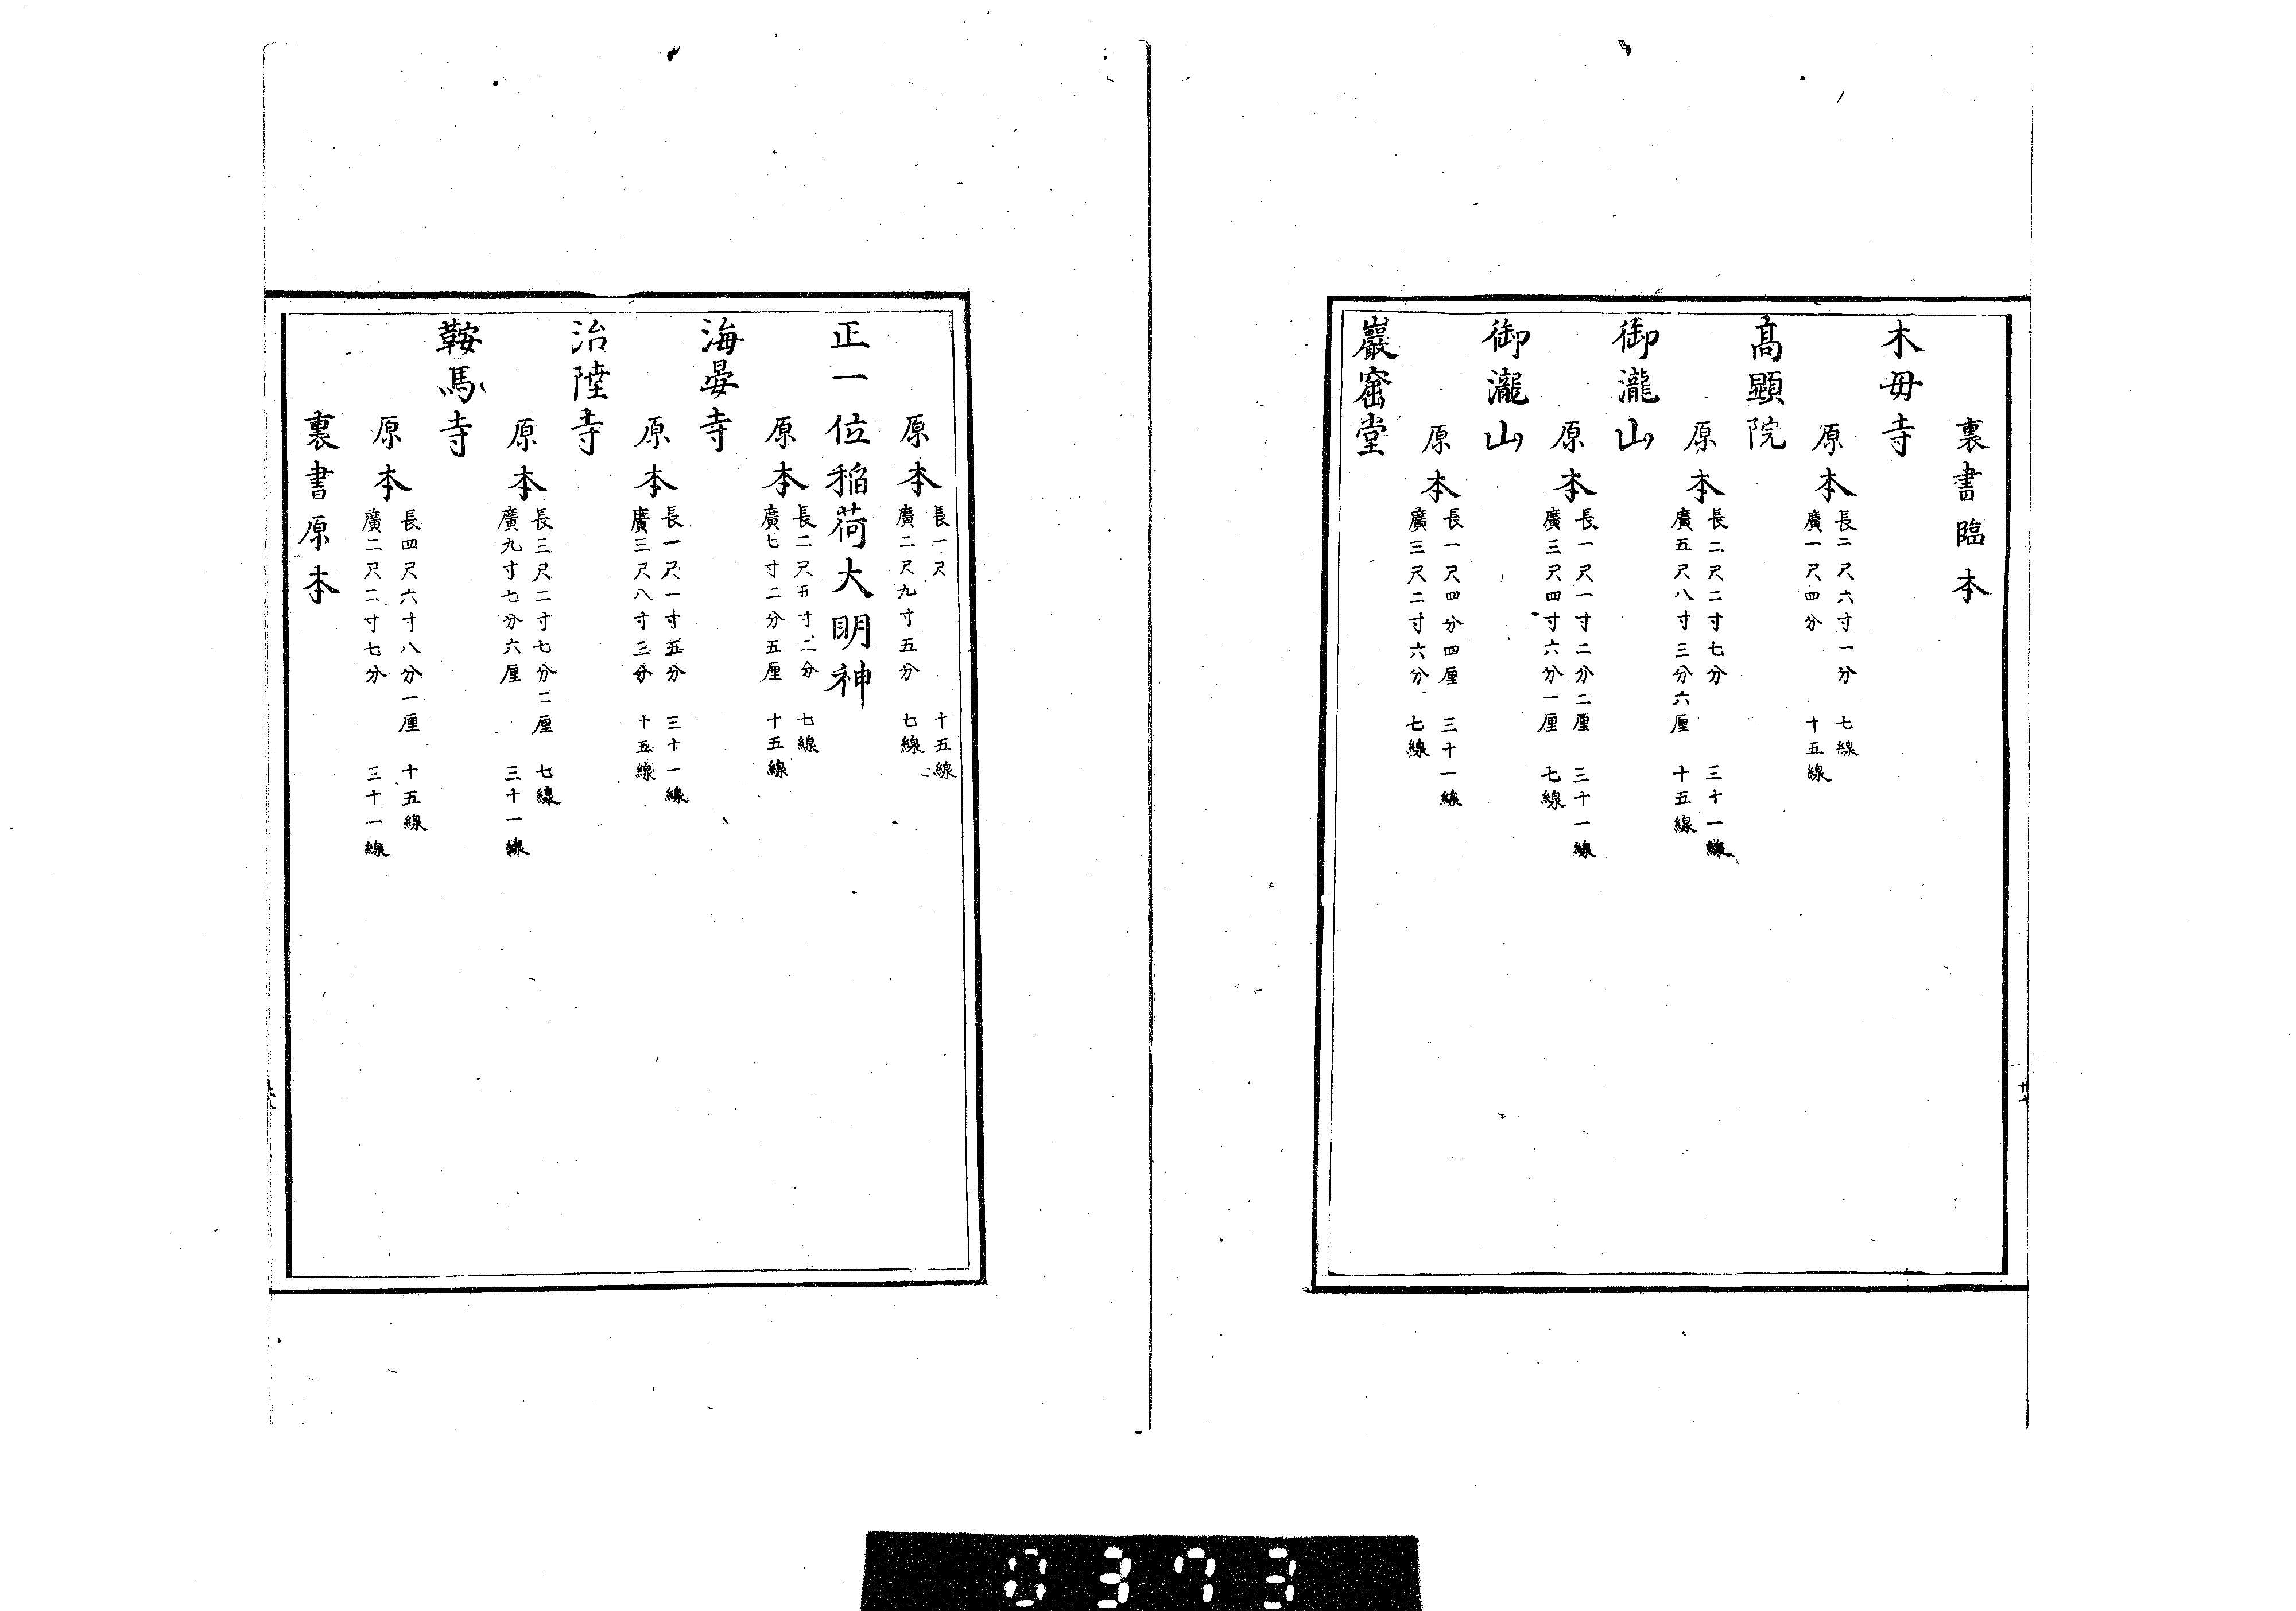 裏書臨本
木毋寺
原本
長二尺六寸一分 七線
廣一尺四分 十五線
髙顕院
原本
長二尺二寸七分 三十一線
廣五尺八寸三分六厘 十五線
御瀧山
原本
長一尺一寸二分二厘 三十一線
廣三尺四寸六分一厘 七線
御瀧山
原本
長一尺四分四厘 三十一線
廣三尺二寸六分 七線
巖窟堂
原本
長一尺 十五線
廣二尺九寸五分 七線
正一位稲荷大明神
原本
長二尺五寸二分 七線
廣七寸二分五厘 十五線
海晏寺
原本
長一尺一寸五分 三十一線
廣三尺八寸三分 十五線
治陸寺
原本
長三尺二寸七分二厘 七線
廣九寸七分六厘 三十一線
鞍馬寺
原本
長四尺六寸八分一厘 十五線
廣二尺二寸七分 三十一線
裏書原本
0373